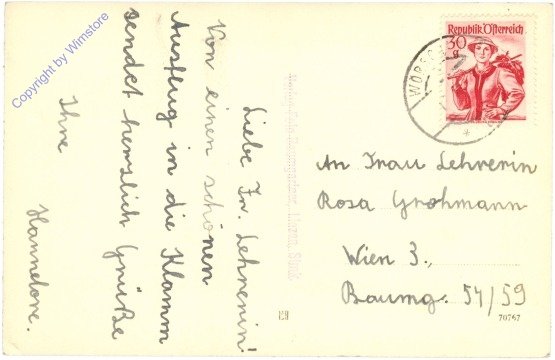 Copyright by Wimstore
Liebe Fr. Lehrerin!
Von einen schönen
Ausflug in die Klamm
sendet herzlich Grüße
Ihre
Hannelore.
Republik Österreich
30
g
WÖR
An Frau Lehrerin
Rosa Grohmann
Wien 3.,
Baumg. 54/59
70767